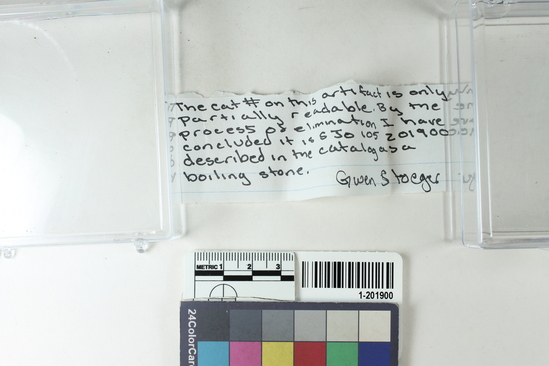 The cat # on this artifact is only
partially readable. By the
process of elimination I have
concluded it is SJO 105 201900
described in the catalog as a
boiling stone. Gwen Stoeger
METRIC 1 2 3
1-201900
24ColorCard